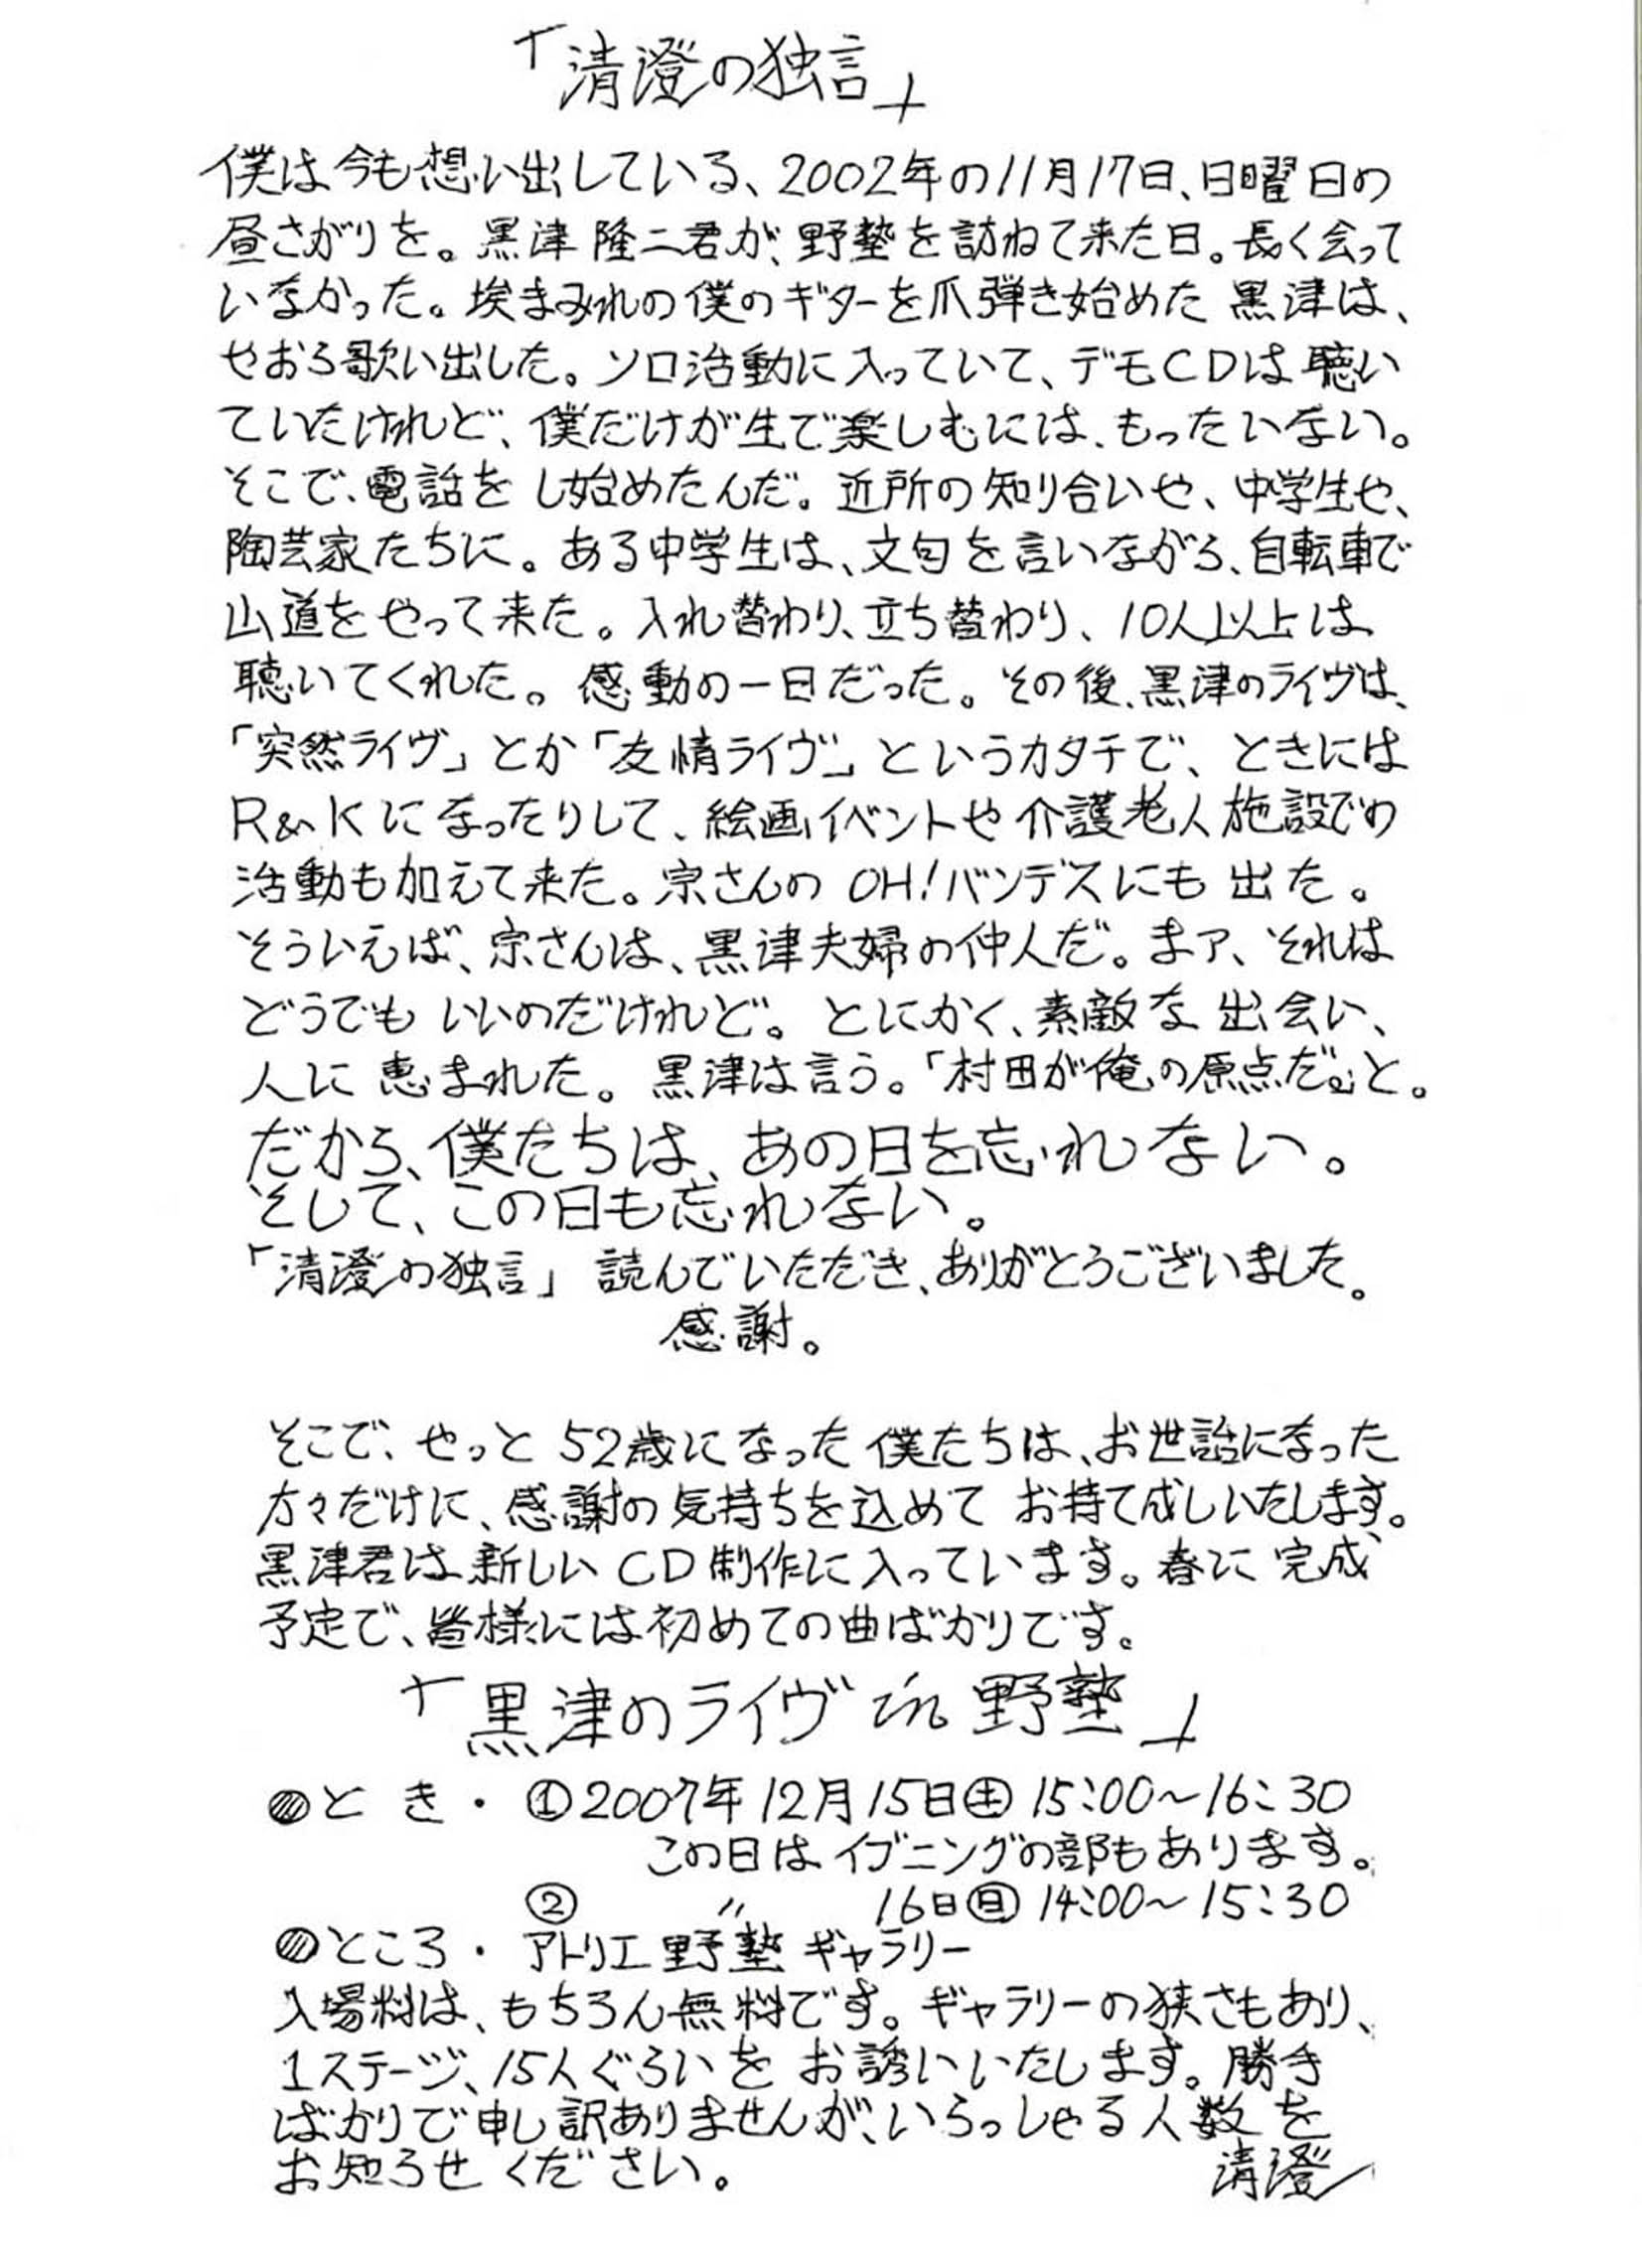 「清澄の独言」
僕は今も想い出している、2002年の11月17日、日曜日の
昼さがりを。黒津隆二君が、野塾を訪ねて来た日。長く会って
いなかった。埃まみれの僕のギターを爪弾き始めた黒津は、
やおら歌い出した。ソロ活動に入っていて、デモCDは聴い
ていたけれど、僕だけが生で楽しむには、もったいない。
そこで、電話をし始めたんだ。近所の知り合いや、中学生や、
陶芸家たちに。ある中学生は、文句を言いながら、自転車で
山道をやって来た。入れ替わり、立ち替わり、10人以上は
聴いてくれた。感動の一日だった。その後、黒津のライヴは、
「突然ライヴ」とか「友情ライヴ」というカタチで、ときには
R&Kになったりして、絵画イベントや介護老人施設での
活動も加えて来た。宗さんのOH!バンデスにも出た。
そういえば、宗さんは、黒津夫婦の仲人だ。まァ、それは
どうでもいいのだけれど。とにかく、素敵な出会い、
人に恵まれた。黒津は言う。「村田が俺の原点だ。」と。
だから、僕たちは、あの日を忘れない。
そして、この日も忘れない。
「清澄の独言」読んでいただき、ありがとうございました。
感謝。
そこで、やっと52歳になった僕たちは、お世話になった
方々だけに、感謝の気持ちを込めてお持て成しいたします。
黒津君は新しいCD制作に入っています。春に完成
予定で、皆様には初めての曲ばかりです。
「黒津のライヴin野塾」
●とき・①2007年12月15日㊏15:00～16:30
この日はイブニングの部もあります。
②〃16日㊐14:00～15:30
●ところ・アトリエ野塾ギャラリー
入場料は、もちろん無料です。ギャラリーの狭さもあり、
1ステージ、15人ぐらいをお誘いいたします。勝手
ばかりで申し訳ありませんが、いらっしゃる人数を
お知らせください。
清澄